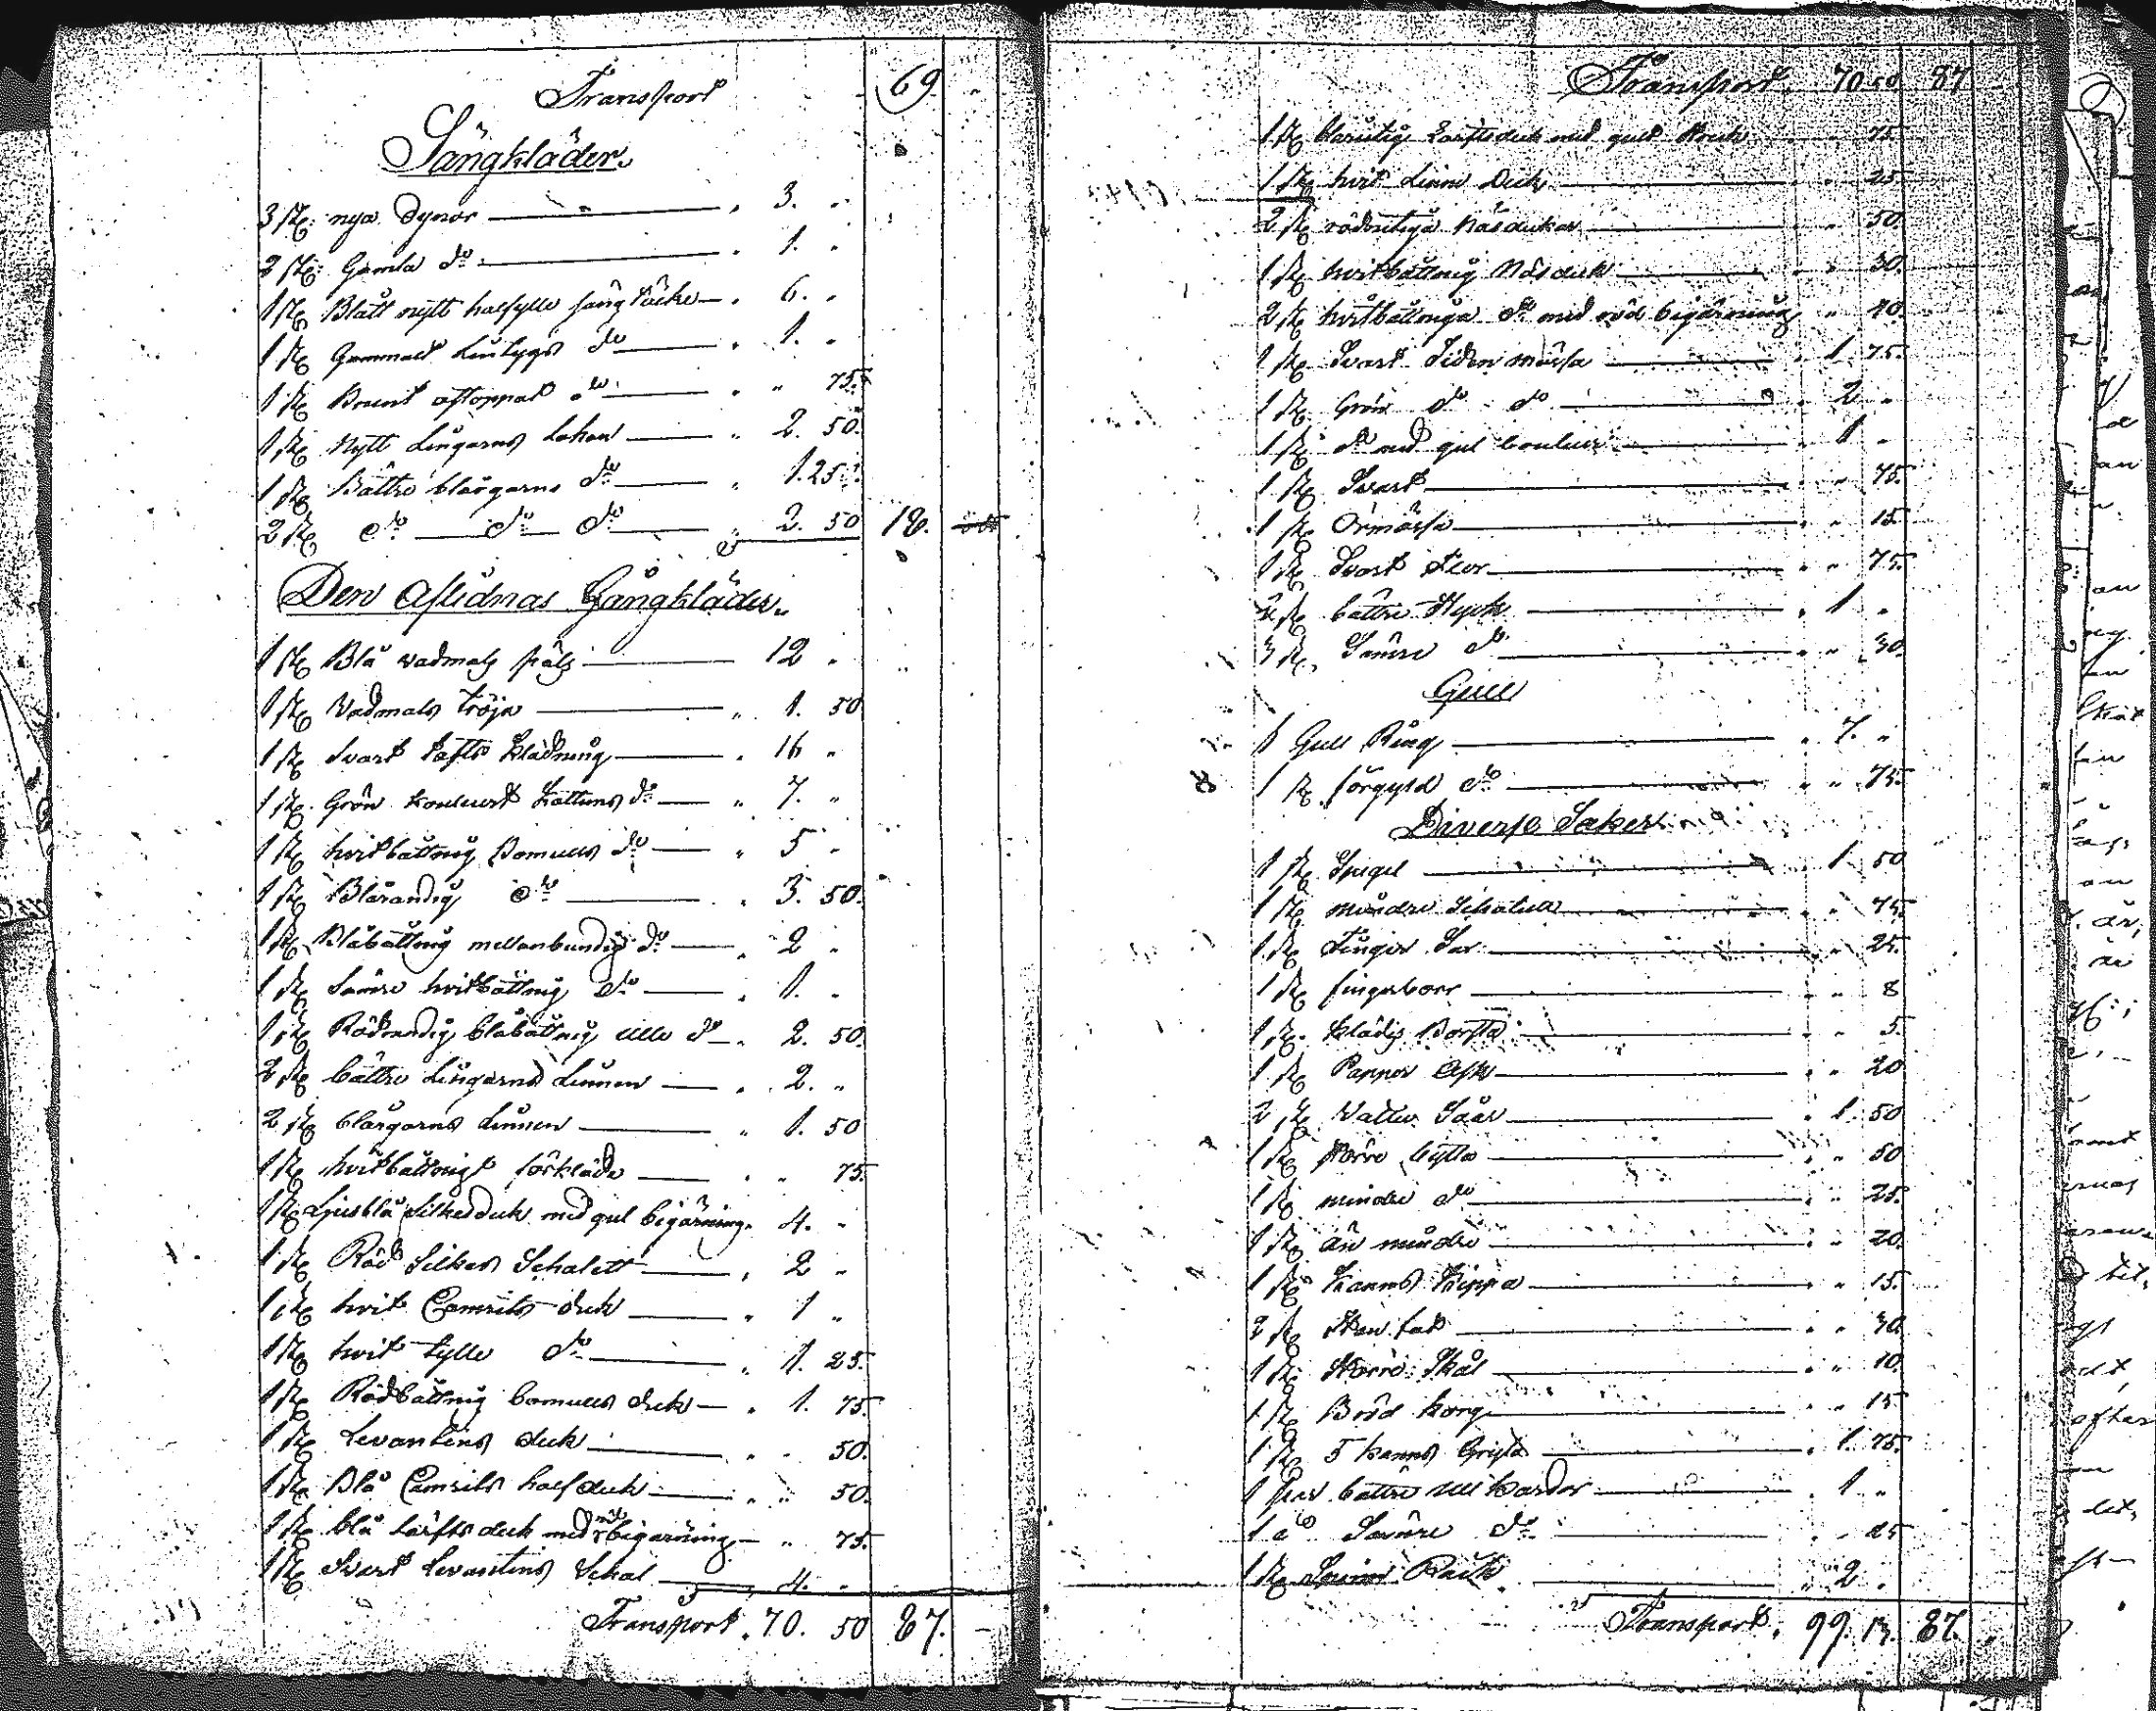 Transport 69 "
Sängkläder.
3 st: nya Dynor " 3. "
2 st: Gamla do: " 1. "
1 st Blått nytt halfylle sängtäcke " 6. "
1 st Gammalt Lintygs do " 1. "
1 st Brunt do " " 75.
1 st Nytt Lingarns Lakan " 2. 50.
1 st Bättre blårgarns do " 1. 25.
2 st do do do " 2. 50 18.
Den Aflidnas Gångkläder.
1 st Blå vadmals päls 12 "
1 st Vadmals tröja " 1. 50
1 st Svart tafts klädning " 16 "
1 st. Grön Kattuns do " 7. "
1 st hvitbåttnig Bomulls do " 5 "
1 st Blårandig do " 3. 50.
1 st Blåbåttnig do " 2 "
1 st Sämre hvitbåttnig do " 1. "
1 st Rödrandig blåbåttnig ulle do " 2. 50.
2 st bättre Lingarns Linnen " 2. "
2 st blårgarns Linnen " 1. 50
1 st hvitbåttnigt förkläde " " 75.
1 st Ljusblå Silkesduk med gul begärning. 4. "
1 st Röd Silkes Schalett " 2 "
1 st hvit Camrits duk " 1 "
1 st hvit tylls do " 1. 25.
1 st Rödbåttnig bomulls duk " 1. 75.
1 st Levantins duk " " 50.
1 st Blå Camrits halfduk " " 50.
1 st blå lärfts duk med röd begärning " 75.
1 st Svart Levantins Schal 4. "
Transport. 70. 50 87. "
Transport. 70 50 87
1 st lärftsduk med gul 75
1 st hvit Linne Duk " " 25
2 st rödrutiga Näsdukar " " 50.
1 st hvitbåttnig Näsduk " " 30.
2 st hvitbåttniga do med röd begärning " 40.
1 st Svart Siden mössa " 1 75.
1 st Grön do do " 2 "
1 st do med gul couleur " 1 "
1 st Svart " " 75.
1 st " " 15.
1 st Svart Flor " " 75.
2 st bättre " 1 "
3 st. Sämre do " " 30.
Gull
1 Gull Ring " 7. "
1 st förgyld do " " 75.
Diverse Saker
1 st Spegel " 1 50
1 st mindre Schatull " " 75.
1 st Sax " " 25.
1 st fingerborr " " 8
1 st. klädes Borsta " " 5.
1 st Pappers Ask " " 20
2 st Vatten Såar " 1. 50
1 st större bytta " " 50
1 st mindre do " " 25.
1 st än mindre " " 20.
1 st Kanns Kippa " " 15.
2 st Sten fat " " 30.
1 st större Skål " " 10.
1 st Bröd korg " " 15
1 st 5 kanns Gryta " 1. 75.
1 par bättre ull kardor " 1 "
1 do Sämre do " " 25
1 st Spinn Råck " 2 "
Transport. 99. 13. 87. "